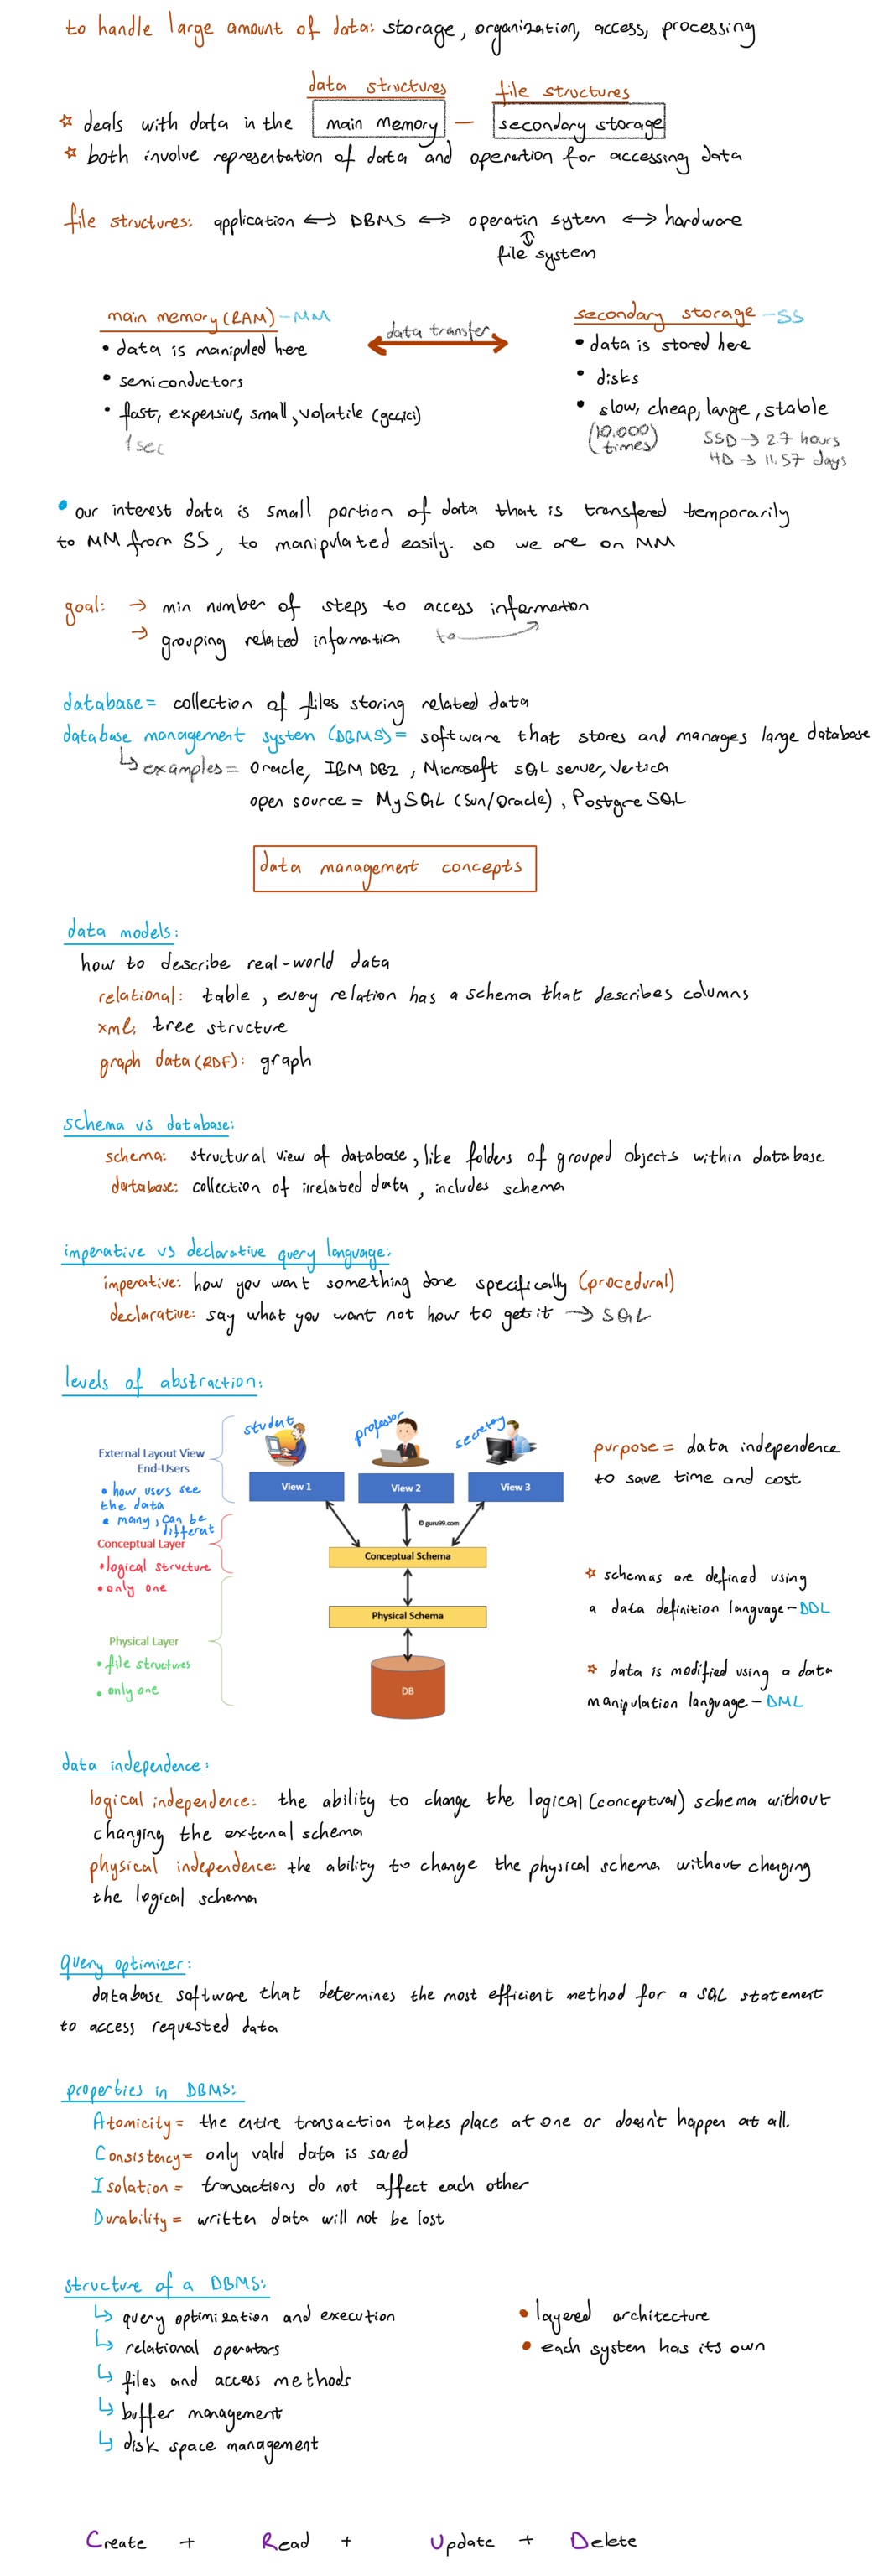 to handle large amount of data: storage, organization, access, processing
data structures file structures
☆ deals with data in the main memory — secondary storage
☆ both involve representation of data and operation for accessing data
file structures: application ⟺ DBMS ⟺ operatin sytem ⟺ hardware
⇕
file system
main memory (RAM) - MM
• data is manipuled here
• semiconductors
• fast, expensive, small, volatile (geçici)
1 sec
data transfer
secondary storage - SS
• data is stored here
• disks
• slow, cheap, large, stable
(10.000) times
SSD → 2.7 hours
HD → 11.57 days
• our interest data is small portion of data that is transfered temporarily
to MM from SS, to manipulated easily. so we are on MM
goal: → min number of steps to access information
→ grouping related information to
database = collection of files storing related data
database management system (DBMS) = software that stores and manages large database
↳ examples = Oracle, IBM DB2, Microsoft SQL server, Vertica
open source = MySQL (Sun/Oracle), PostgreSQL
data management concepts
data models:
how to describe real-world data
relational: table, every relation has a schema that describes columns
xml: tree structure
graph data (RDF): graph
schema vs database:
schema: structural view of database, like folders of grouped objects within database
database: collection of irrelated data, includes schema
imperative vs declarative query language:
imperative: how you want something done specifically (procedural)
declarative: say what you want not how to get it → SQL
levels of abstraction:
student professor secretary
External Layout View
End-Users
• how users see
the data
• many, can be
differat
View 1 View 2 View 3
© guru99.com
Conceptual Layer
• logical structure
• only one
Conceptual Schema
Physical Schema
Physical Layer
• file structures
• only one
DB
purpose = data independence
to save time and cost
☆ schemas are defined using
a data definition language - DDL
☆ data is modified using a data
manipulation language - DML
data independence:
logical independence: the ability to change the logical (conceptual) schema without
changing the external schema
physical independence: the ability to change the physical schema without changing
the logical schema
query optimizer:
database software that determines the most efficient method for a SQL statement
to access requested data
properties in DBMS:
Atomicity = the entire transaction takes place at one or doesn't happen at all.
Consistency = only valid data is saved
Isolation = transactions do not affect each other
Durability = written data will not be lost
structure of a DBMS:
↳ query optimization and execution
↳ relational operators
↳ files and access methods
↳ buffer management
↳ disk space management
• layered architecture
• each system has its own
Create + Read + Update + Delete